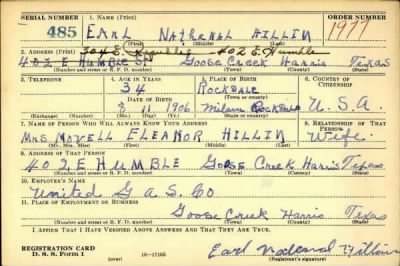 SERIAL NUMBER 1. NAME (Print) ORDER NUMBER
485 EARL NATHENAL HILLIN 1977
(First) (Middle) (Last)
2. ADDRESS (Print) 304 E. Republic 402 E. Humble
402 E HUMBLE ST Goose Creek Harris Texas
(Number and street or R. F. D. number) (Town) (County) (State)
3. TELEPHONE 4. AGE IN YEARS 5. PLACE OF BIRTH 6. COUNTRY OF CITIZENSHIP
34 ROCKDALE
DATE OF BIRTH (Town or county)
8 11 1906 Milam Rockdale U.S.A.
(Exchange) (Number) (Mo.) (Day) (Yr.) (State or country)
7. NAME OF PERSON WHO WILL ALWAYS KNOW YOUR ADDRESS 8. RELATIONSHIP OF THAT PERSON
MRS NOVELL ELEANOR HILLIN Wife
(Mr., Mrs., Miss) (First) (Middle) (Last)
9. ADDRESS OF THAT PERSON
402 E HUMBLE GOOSE CREEK HARRIS Texas
(Number and street or R. F. D. number) (Town) (County) (State)
10. EMPLOYER'S NAME
UNITED GAS. CO
11. PLACE OF EMPLOYMENT OR BUSINESS
Goose Creek Harris Texas
(Number and street or R. F. D. number) (Town) (County) (State)
I AFFIRM THAT I HAVE VERIFIED ABOVE ANSWERS AND THAT THEY ARE TRUE.
REGISTRATION CARD
D. S. S. Form 1 (over) 16—17105 Earl Nathenal Hillin
(Registrant's signature)